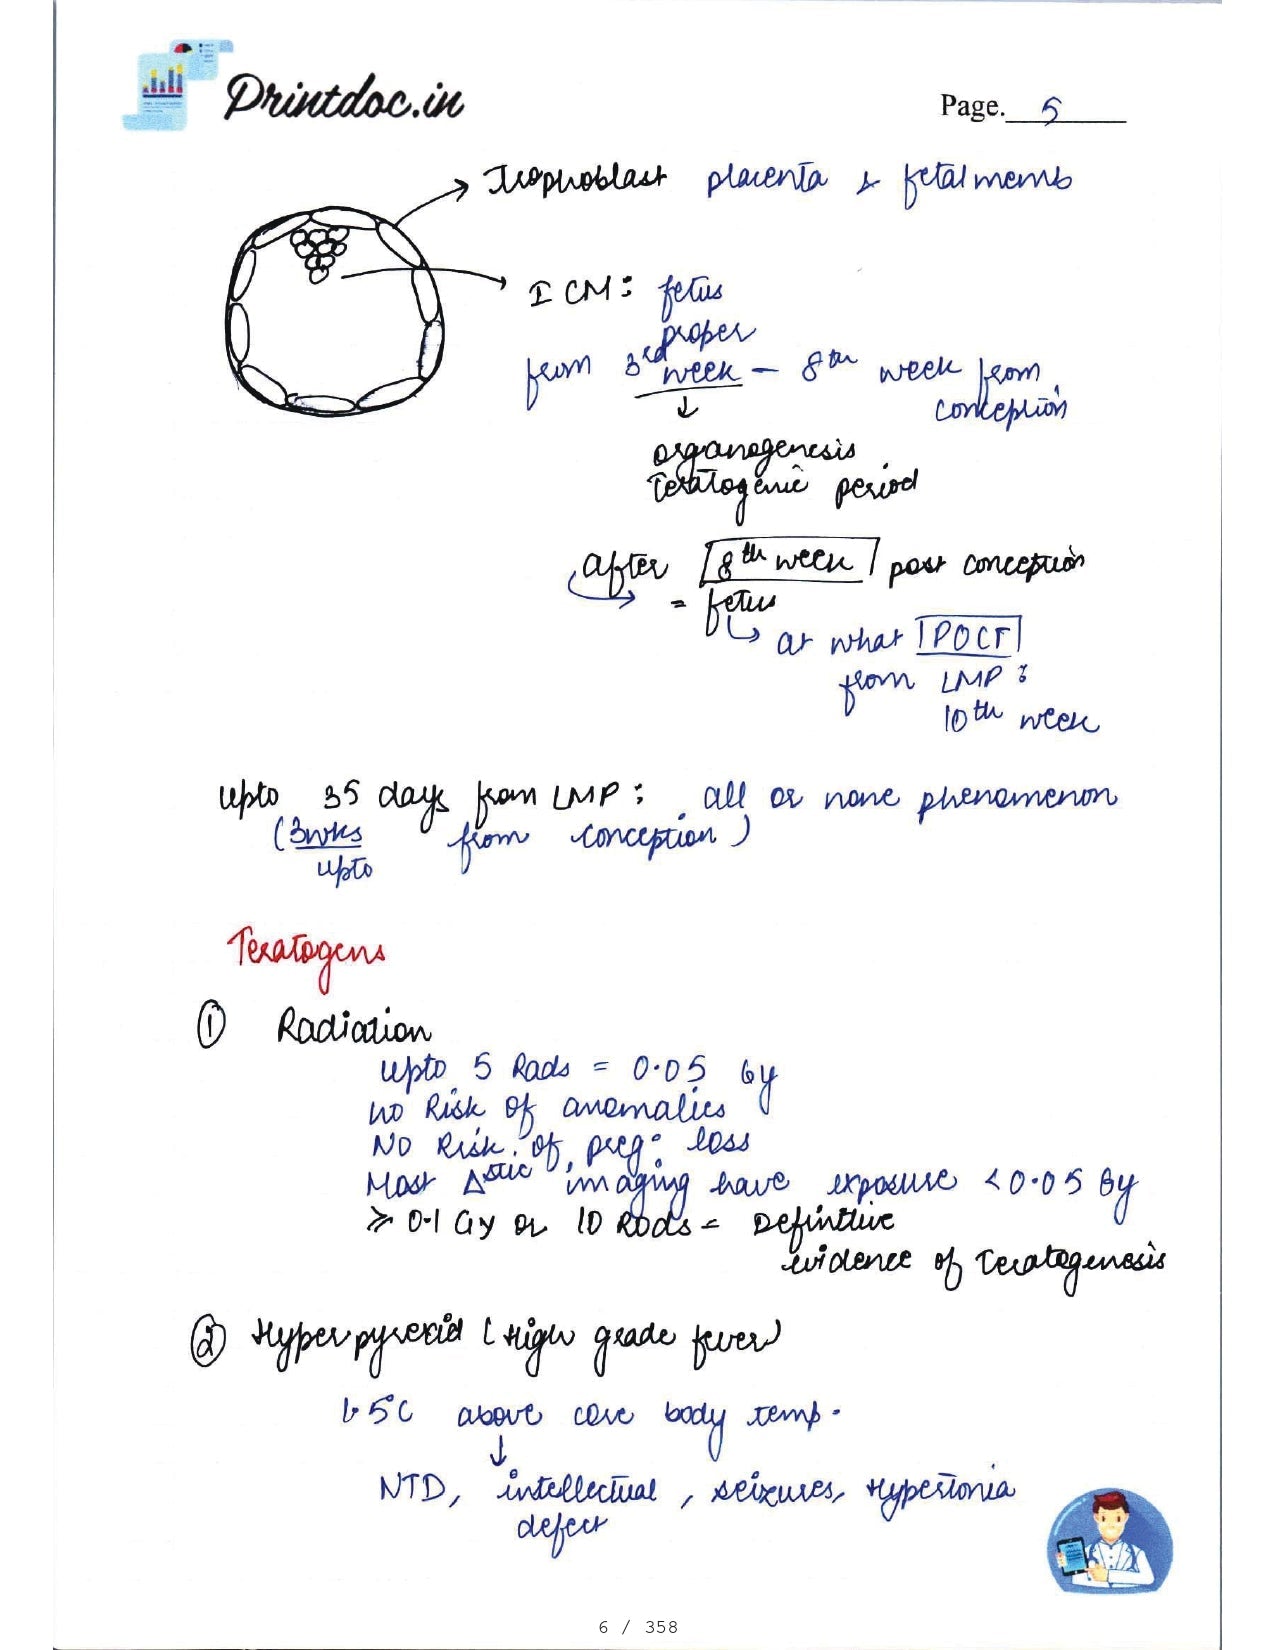 Printdoc.in
Page. 5
Trophoblast placenta & fetal memb
ICM: fetus
proper
from 3rd week – 8th week from
conception
↓
organogenesis
Teratogenic period
After 8th week post conception
= fetus
↳ at what POCT
from LMP:
10th week
upto 35 days from LMP: all or none phenomenon
(3wks from conception)
upto
Teratogens
① Radiation
upto 5 Rads = 0.05 Gy
no Risk of anomalies
NO Risk of preg. loss
Most Δstic imaging have exposure < 0.05 Gy
≥ 0.1 Gy or 10 Rods = Definitive
evidence of Teratogenesis
② Hyperpyrexia (High grade fever)
1.5°C above core body temp.
↓
NTD, intellectual, seizures, Hypertonia
defect
6 / 358